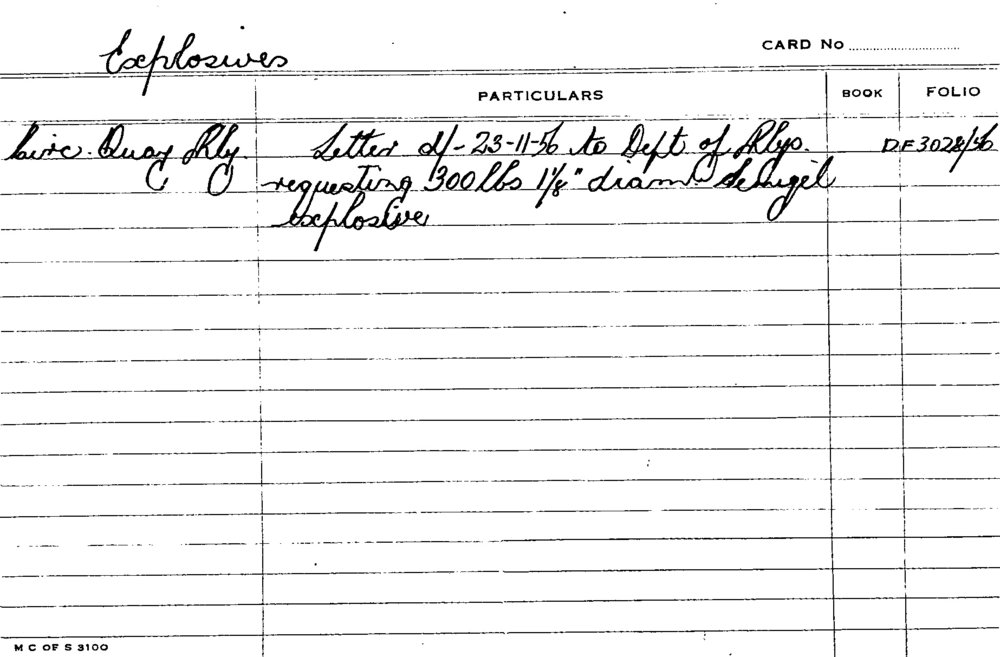 Explosives
CARD No
PARTICULARS
BOOK
FOLIO
Circ. Quay Rly. Letter d/- 23-11-56 to Dept of Rlys. DF3028/56
requesting 300lbs 1⅛" diam Semigel
explosive
M C OF S 3100